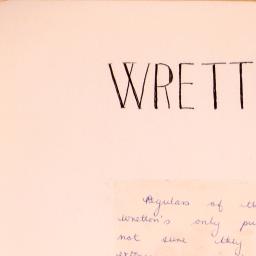 WRETT
Regulars of th
Wretton's only pu
not sure they